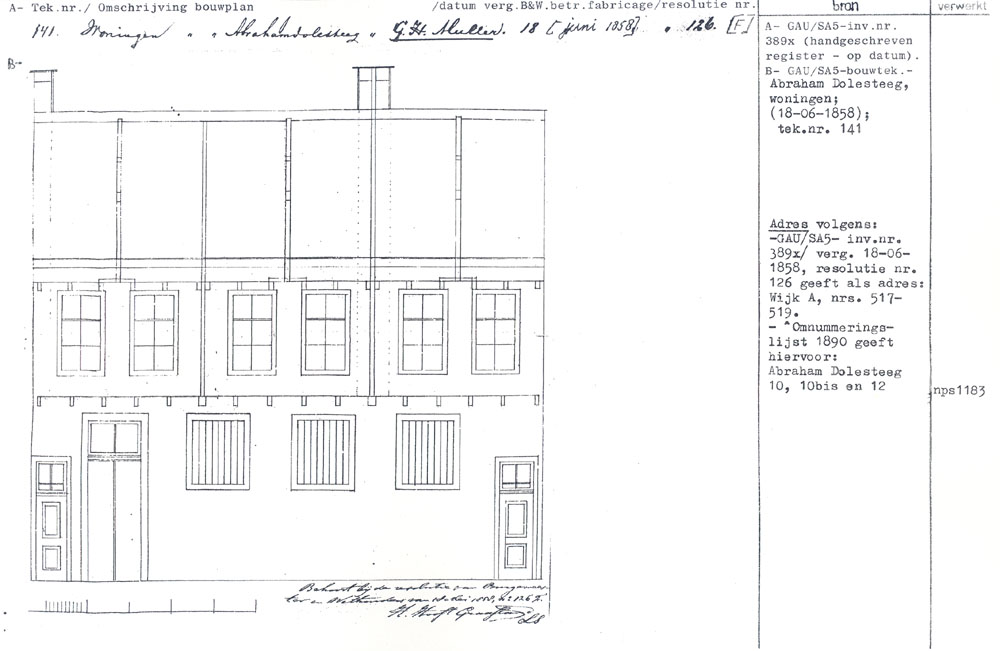 A- Tek.nr./ Omschrijving bouwplan /datum verg.B&W.betr.fabricage/resolutie nr. bron verwerkt
141. Woningen " " Abrahamdolesteeg " G. H. Muller. 18 [juni 1858]. " 126. [F]
B-
A- GAU/SA5-inv.nr.
389x (handgeschreven
register - op datum).
B- GAU/SA5-bouwtek.-
Abraham Dolesteeg,
woningen;
(18-06-1858);
tek.nr. 141
Adres volgens:
-GAU/SA5- inv.nr.
389x/ verg. 18-06-
1858, resolutie nr.
126 geeft als adres:
Wijk A, nrs. 517-
519.
- ^Omnummerings-
lijst 1890 geeft
hiervoor:
Abraham Dolesteeg
10, 10bis en 12
nps1183
Behoort bij de resolutie van Burgemees
ter en Wethouders van 1858, no 126 F.